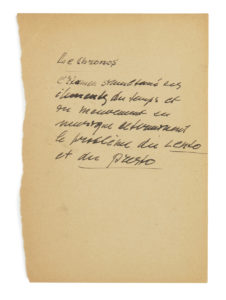 Le Chronos
l'Examen simultané des
éléments du temps et
du mouvement en
musique déterminant
le problème du Lento
et du presto